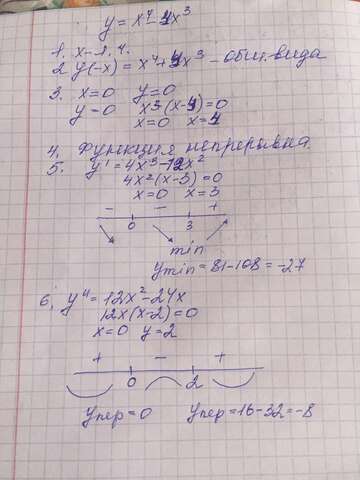 y = x⁴ - 4x³
1. x - л. ч.
2 y(-x) = x⁴ + 4x³ - общ. вида
3. x=0 y=0
y=0 x3(x-4)=0
x=0 x=4
4. Функция непрерывна.
5. y' = 4x³ - 12x²
4x²(x-3) = 0
x=0 x=3
- - +
0 3
min
ymin = 81-108 = -27
6, y" = 12x² - 24x
12x(x-2) = 0
x=0 y=2
+ - +
0 2
yпер = 0 yпер = 16-32 = -8